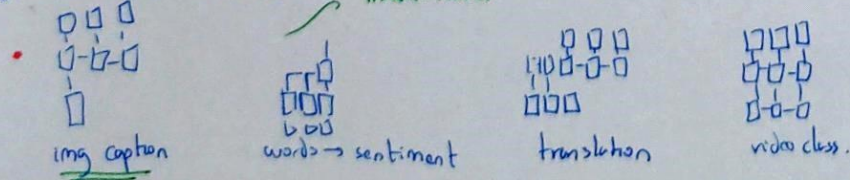 img caption
words → sentiment
translation
video class.